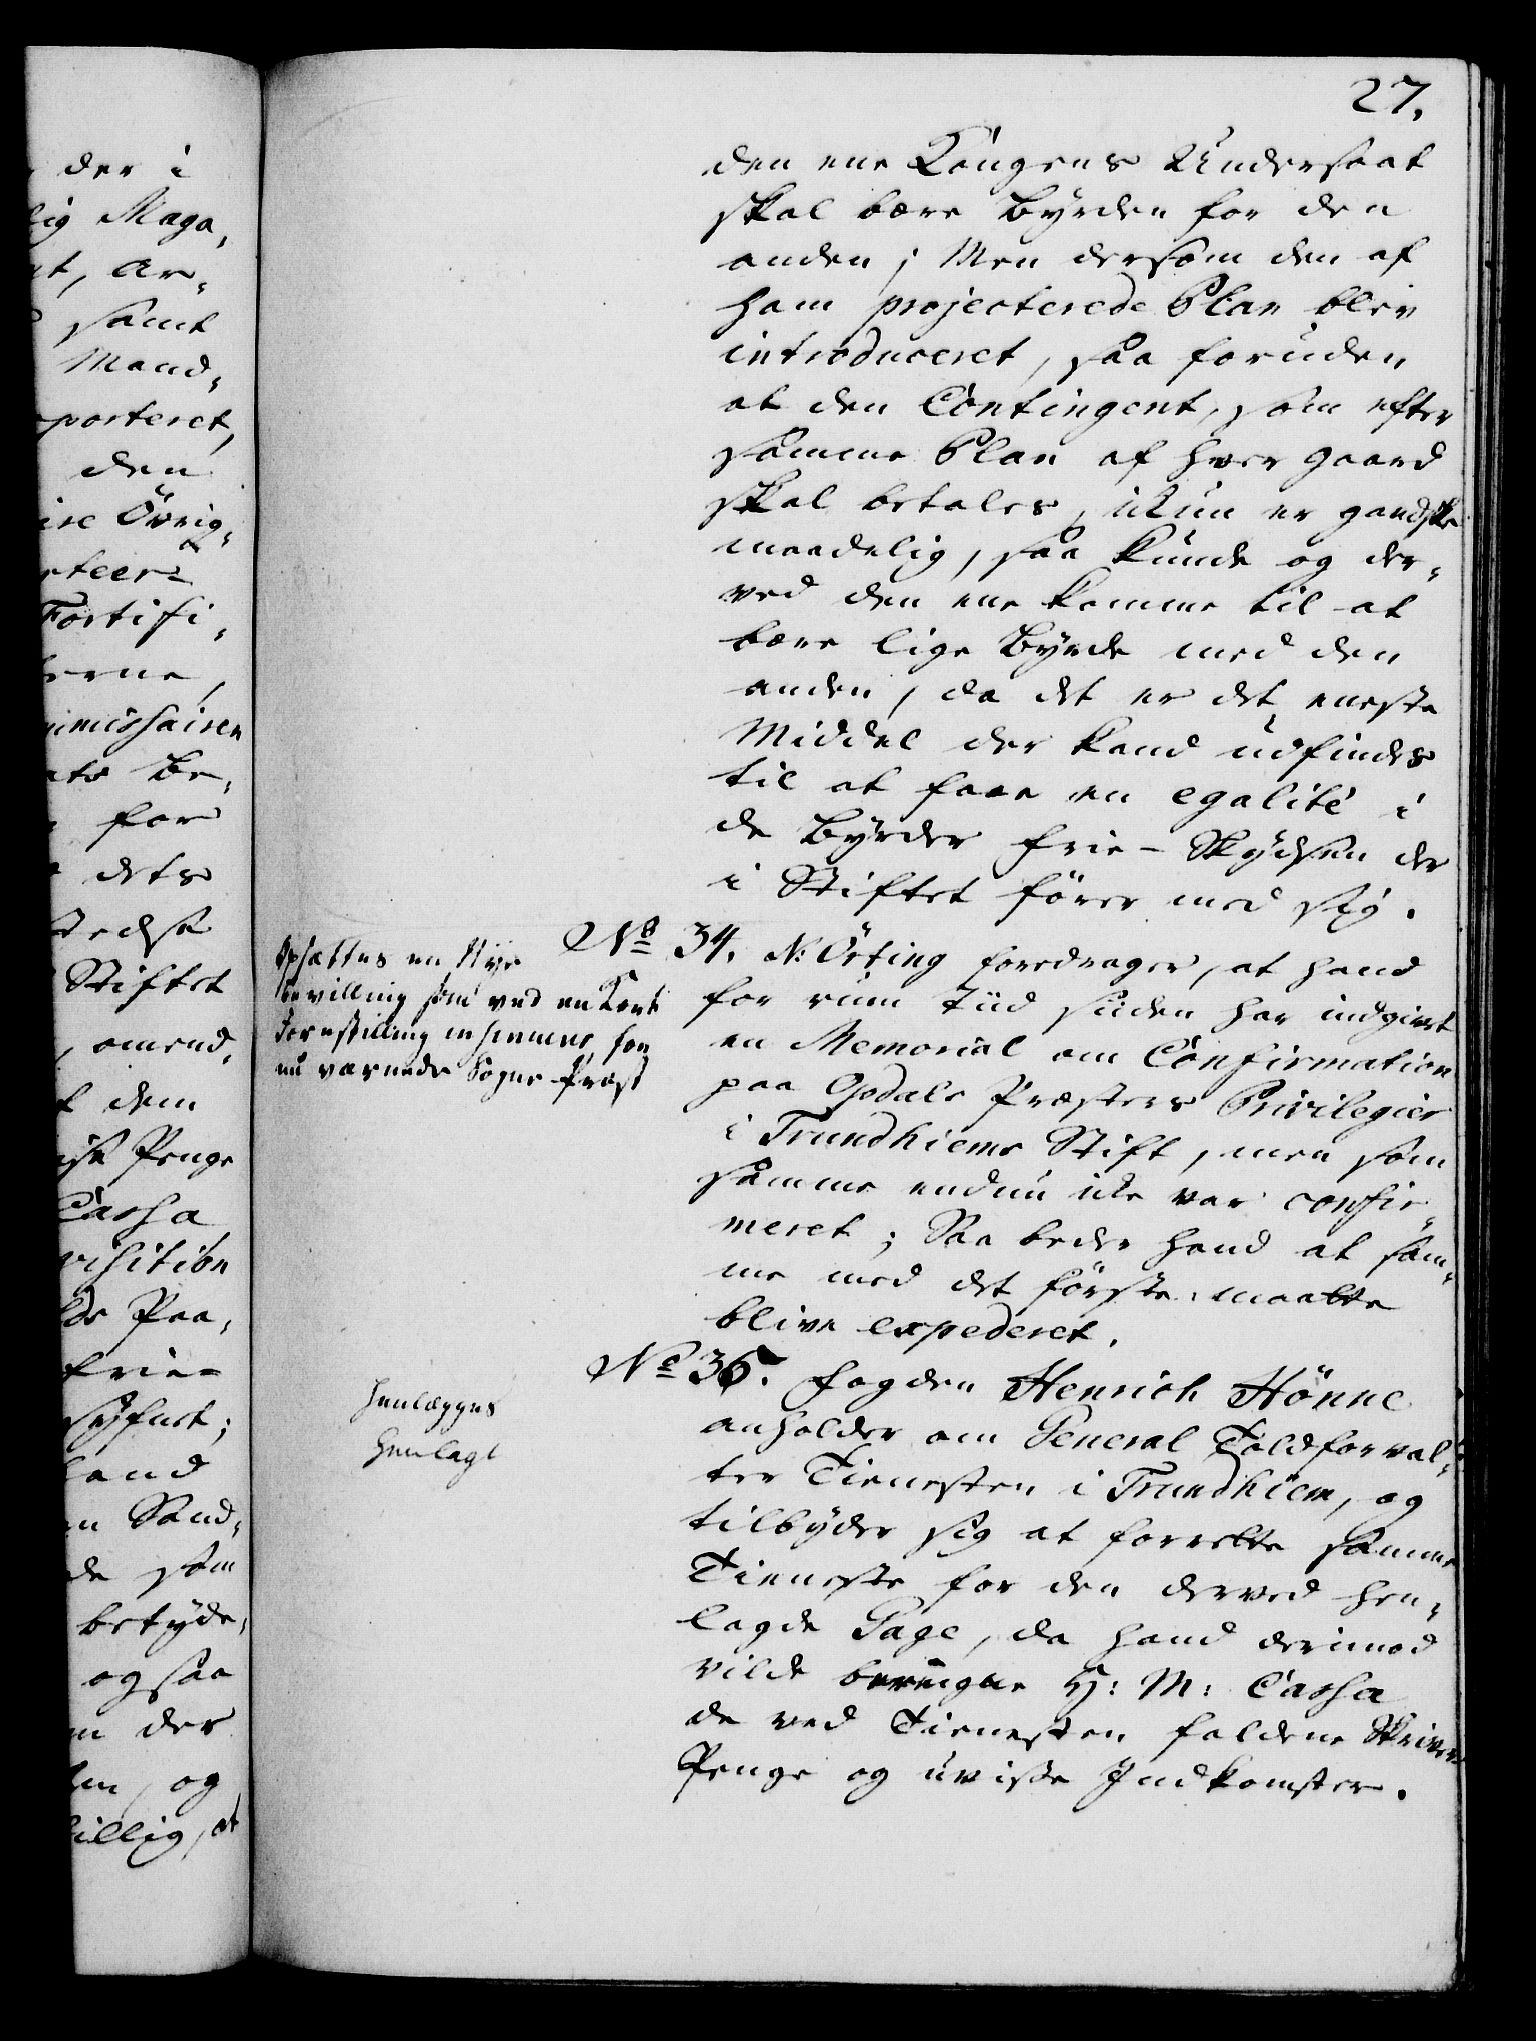 27.
den ene Kongens Undersaat
skal bære Byrden for den
anden; Men dersom den af
ham projecterede Plan blev
introduceret, saa foruden
at den Contingent, som efter
samme Plan af hver gaard
skal betales, ikun er gandske
maadelig, saa kunde og der-
ved den ene komme til at
bære lige Byrde med den
anden, da det er det eneste
Middel der kand udfindes
til at faae en egalité i
de Byrder frie-Skydsen der
i Stiftet fører med sig.
No 34. N: Örting foredrager, at hand
for rum Tiid siiden har indgivet
en Memorial om Confirmation
paa Opdals Præsters Privilegier
i Trundhiems Stift, men som
samme endnu ike var confir-
meret; Saa beder hand at sam-
me med det förste maatte
blive expederet.
Opsættes en Nye
bevilling som ved en Kort
Forestilling indsendes for
nu værende Sogne Præst
No 35. Fogden Henrich Hönne
anholder om General Toldforval-
ter Tienesten i Trundhiem, og
tilbyder sig at forrette samme
Tieneste for den derved hen-
lagde Gage, da hand derimod
vilde beregne H: M: Cassa
de ved Tienesten faldene Skriver
Penge og uvisse Indkomster.
henlægges
henlagt
der i
lig Maga,
Ar,
samt
Mand,
porteret,
den
Övrig,
Fortifi,
erne,
mmissairen
Be,
for
dets
Stiftet
omend,
dem
Penge
Cassa
visition
Paa,
frie-
syfret;
hand
Sand,
de som
betyde,
ogsaa
der
og
billig, at